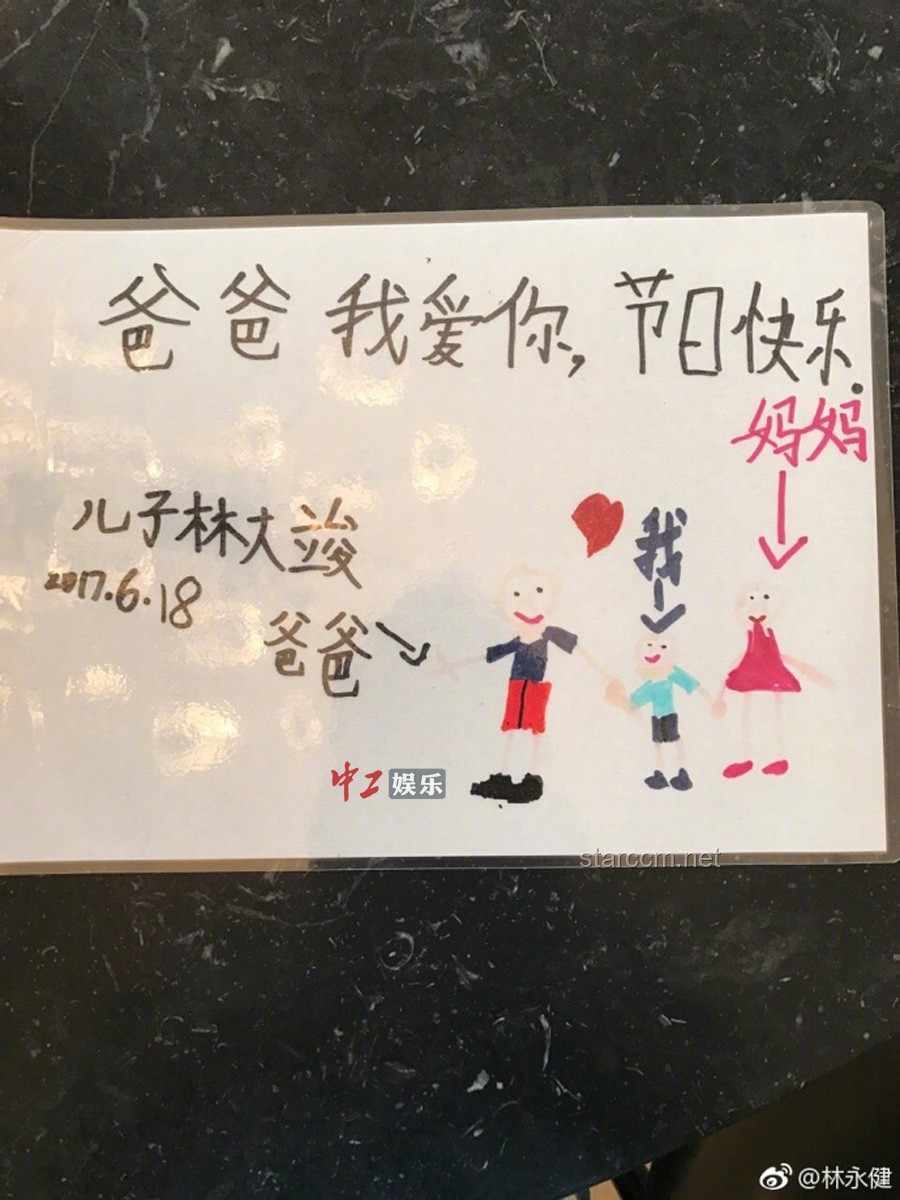 爸爸 我爱你,节日快乐.
妈妈
儿子林大竣
我
2017.6.18
爸爸
中工娱乐
starccm.net
@林永健